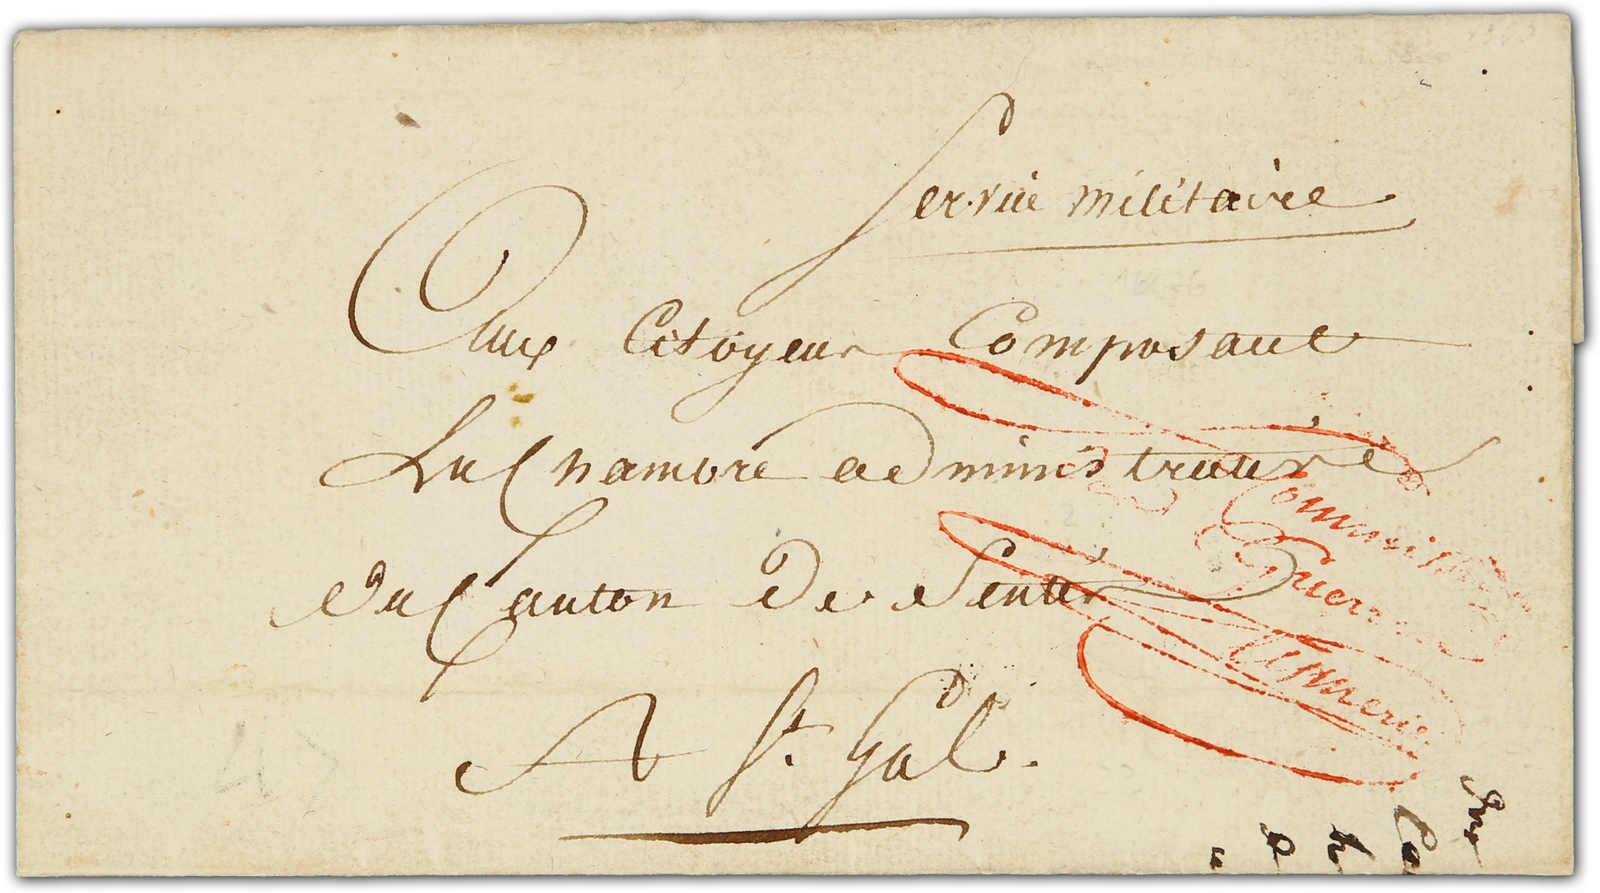 Service militaire
Aux Citoyens Composant
La Chambre administrative
du Canton De Sentis
A St. Gal.
Commissaire
Guerre